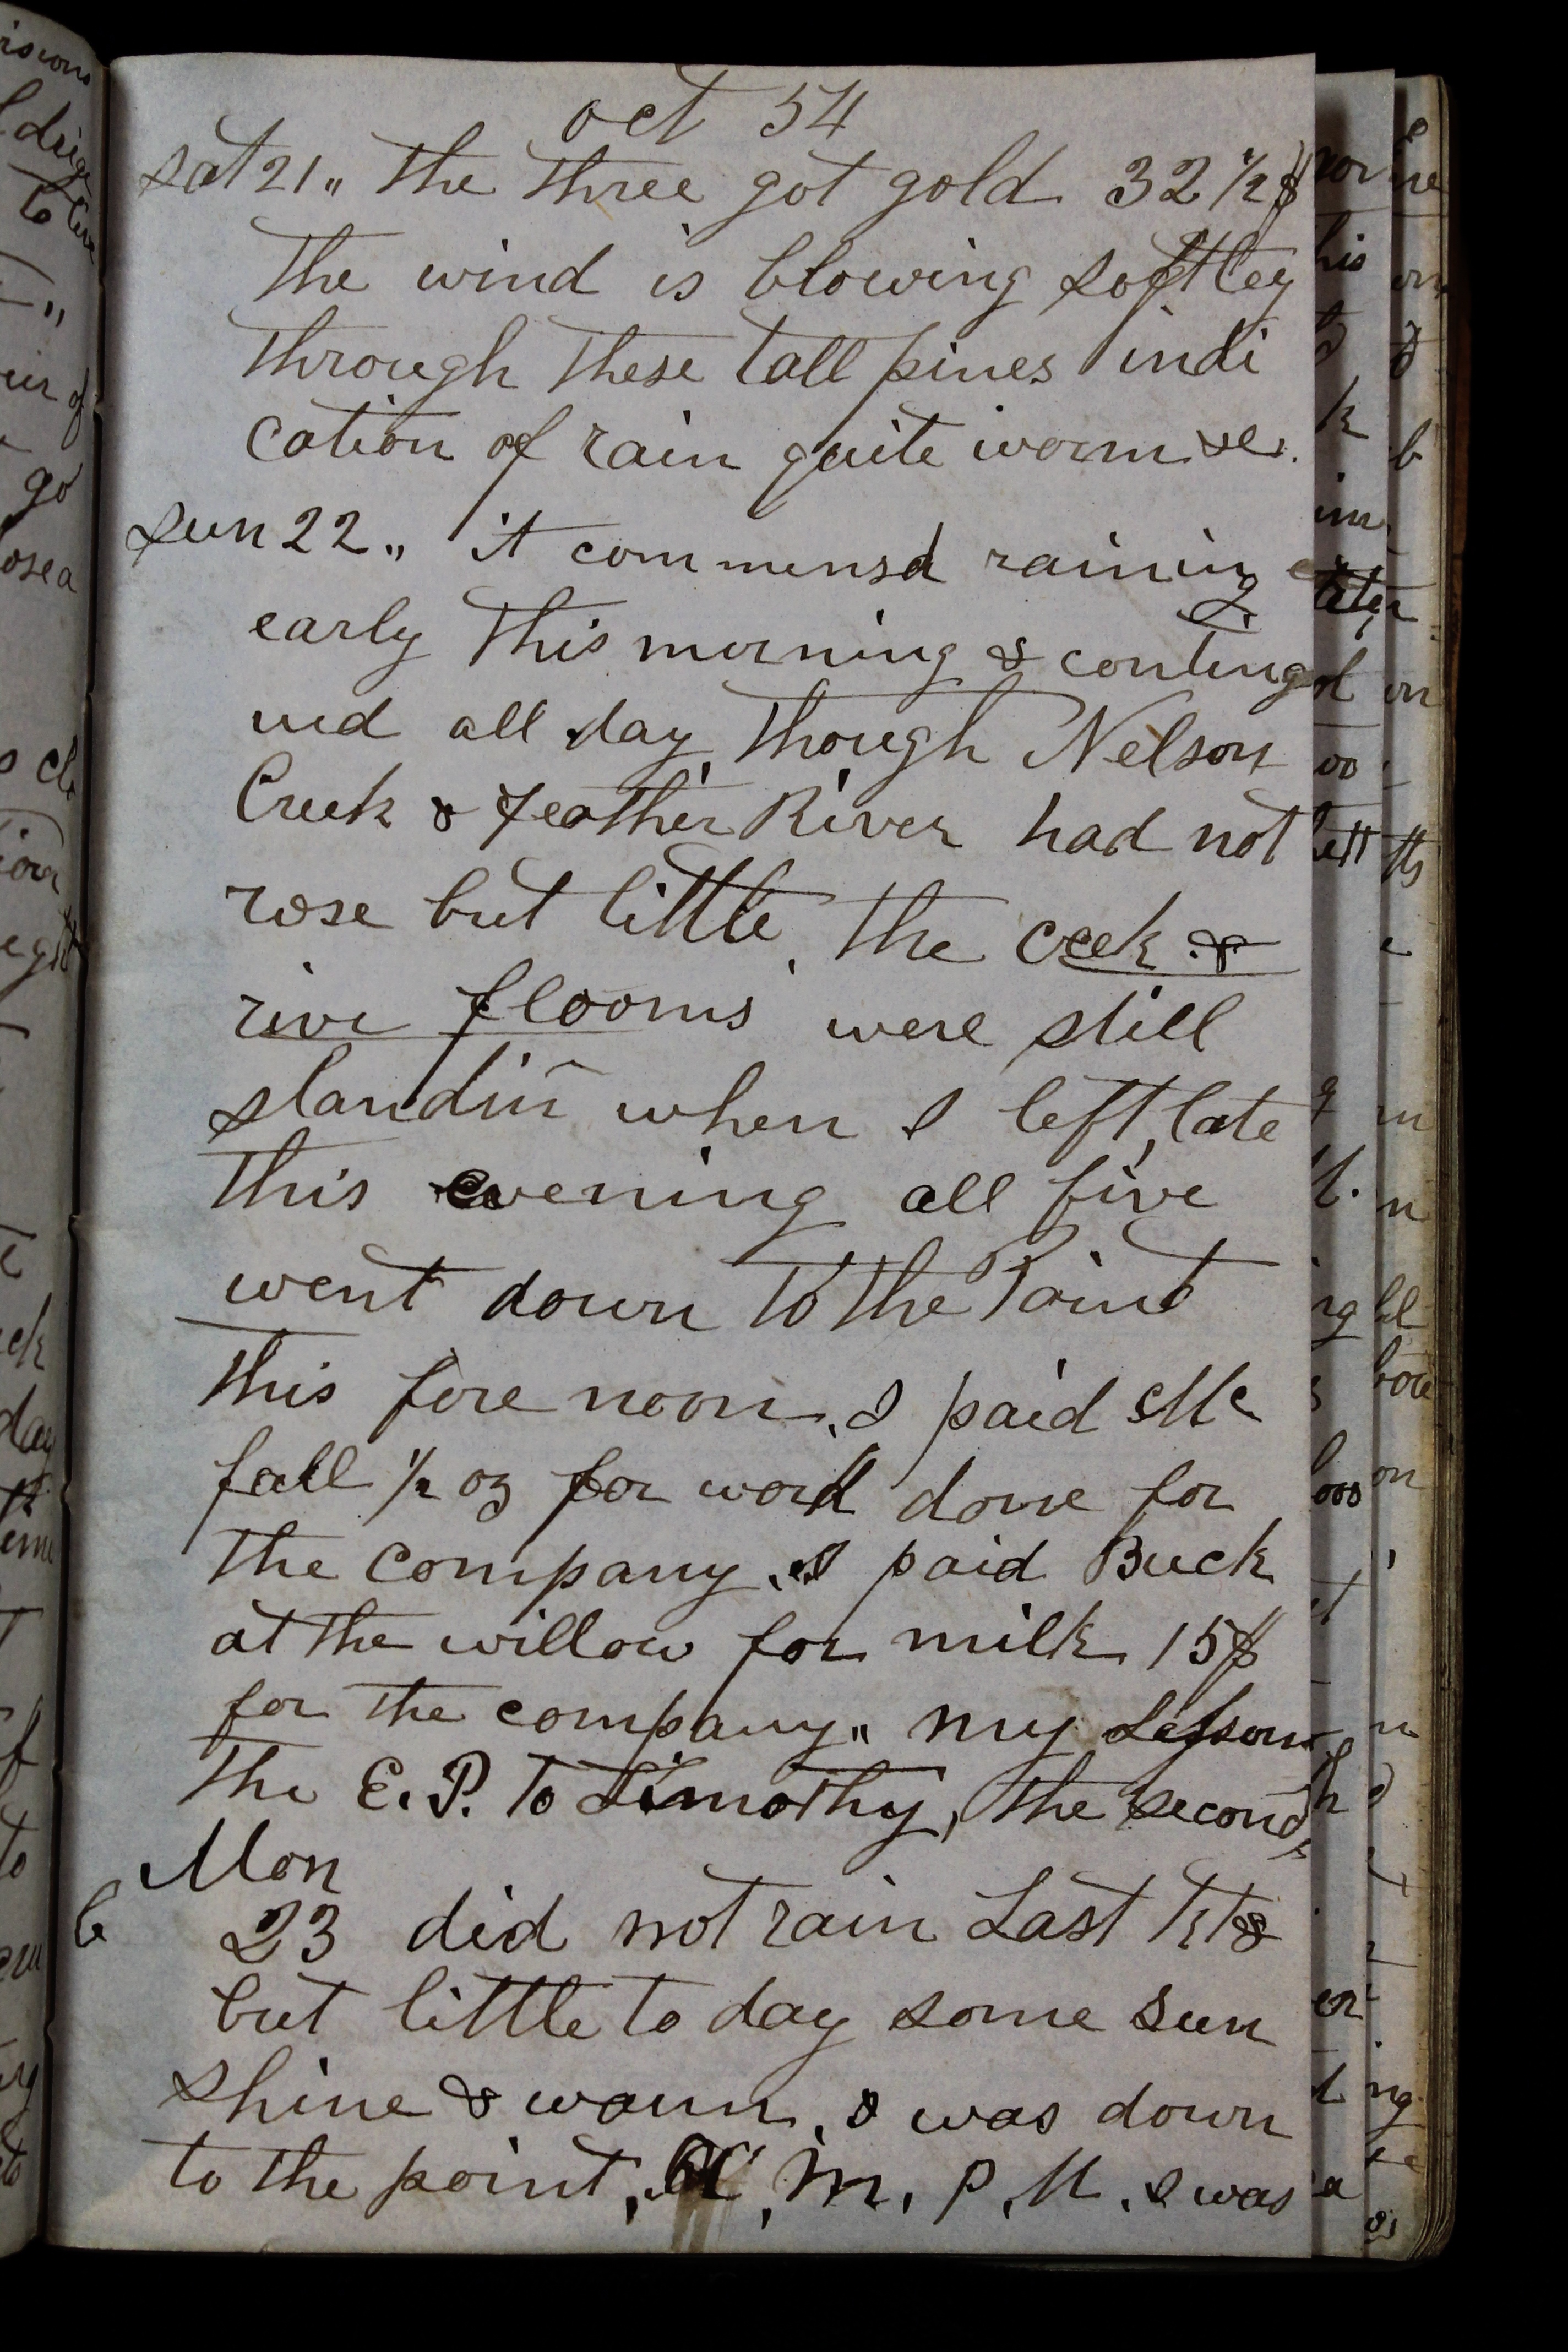 oct 54
sat 21 " the three got gold 32 1/2 $
the wind is blowing softley
through these tall pines indi
cation of rain quite worm &c.
sun 22 " it commensd raining
early this morning & contin
ud all day, though Nelson
Creek & Feather River had not
rose but little, the creek &
rive flooms were still
standin when I left, late
this evening all five
went down to the Point
this fore noon, I paid Mc
fall 1/2 oz for word done for
the company, I paid Buck
at the willow for milk 15$
for the company " my Lesson
the E. P. to Timothy, the second,
Mon
23 did not rain Last &
but little to day some sun
shine & warm, I was down
to the point, M, P, M, I was